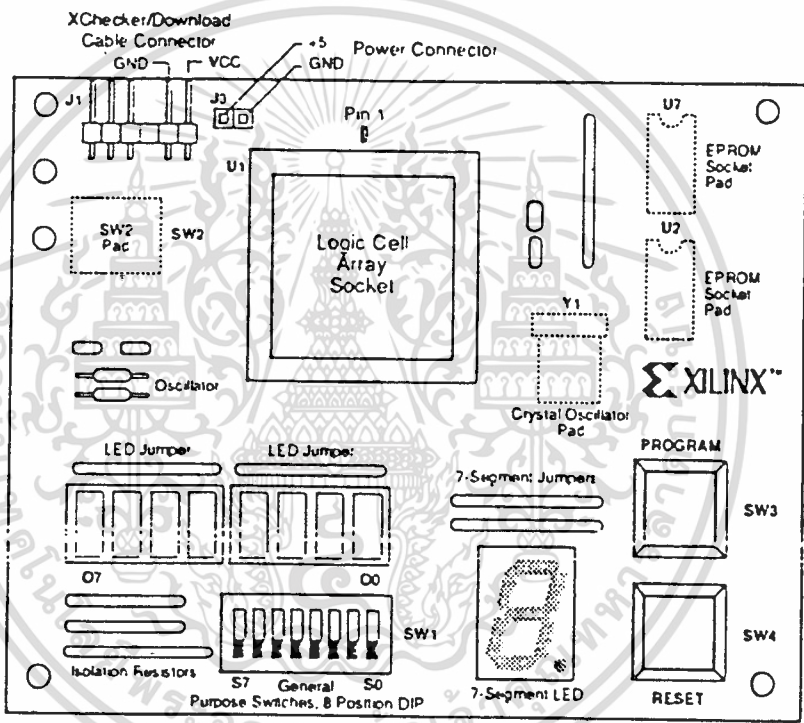 XChecker/Download
Cable Connector
GND
VCC
+5
GND
Power Connector
J1
J3
Pin 1
U1
U7
EPROM
Socket
Pad
SW2
Pad
SW2
Logic Cell
Array
Socket
U2
EPROM
Socket
Pad
Y1
Oscillator
Crystal Oscillator
Pad
XILINX™
LED Jumper
LED Jumper
7-Segment Jumpers
PROGRAM
SW3
O7
O0
SW1
SW4
Isolation Resistors
S7
General
S0
Purpose Switches, 8 Position DIP
7-Segment LED
RESET